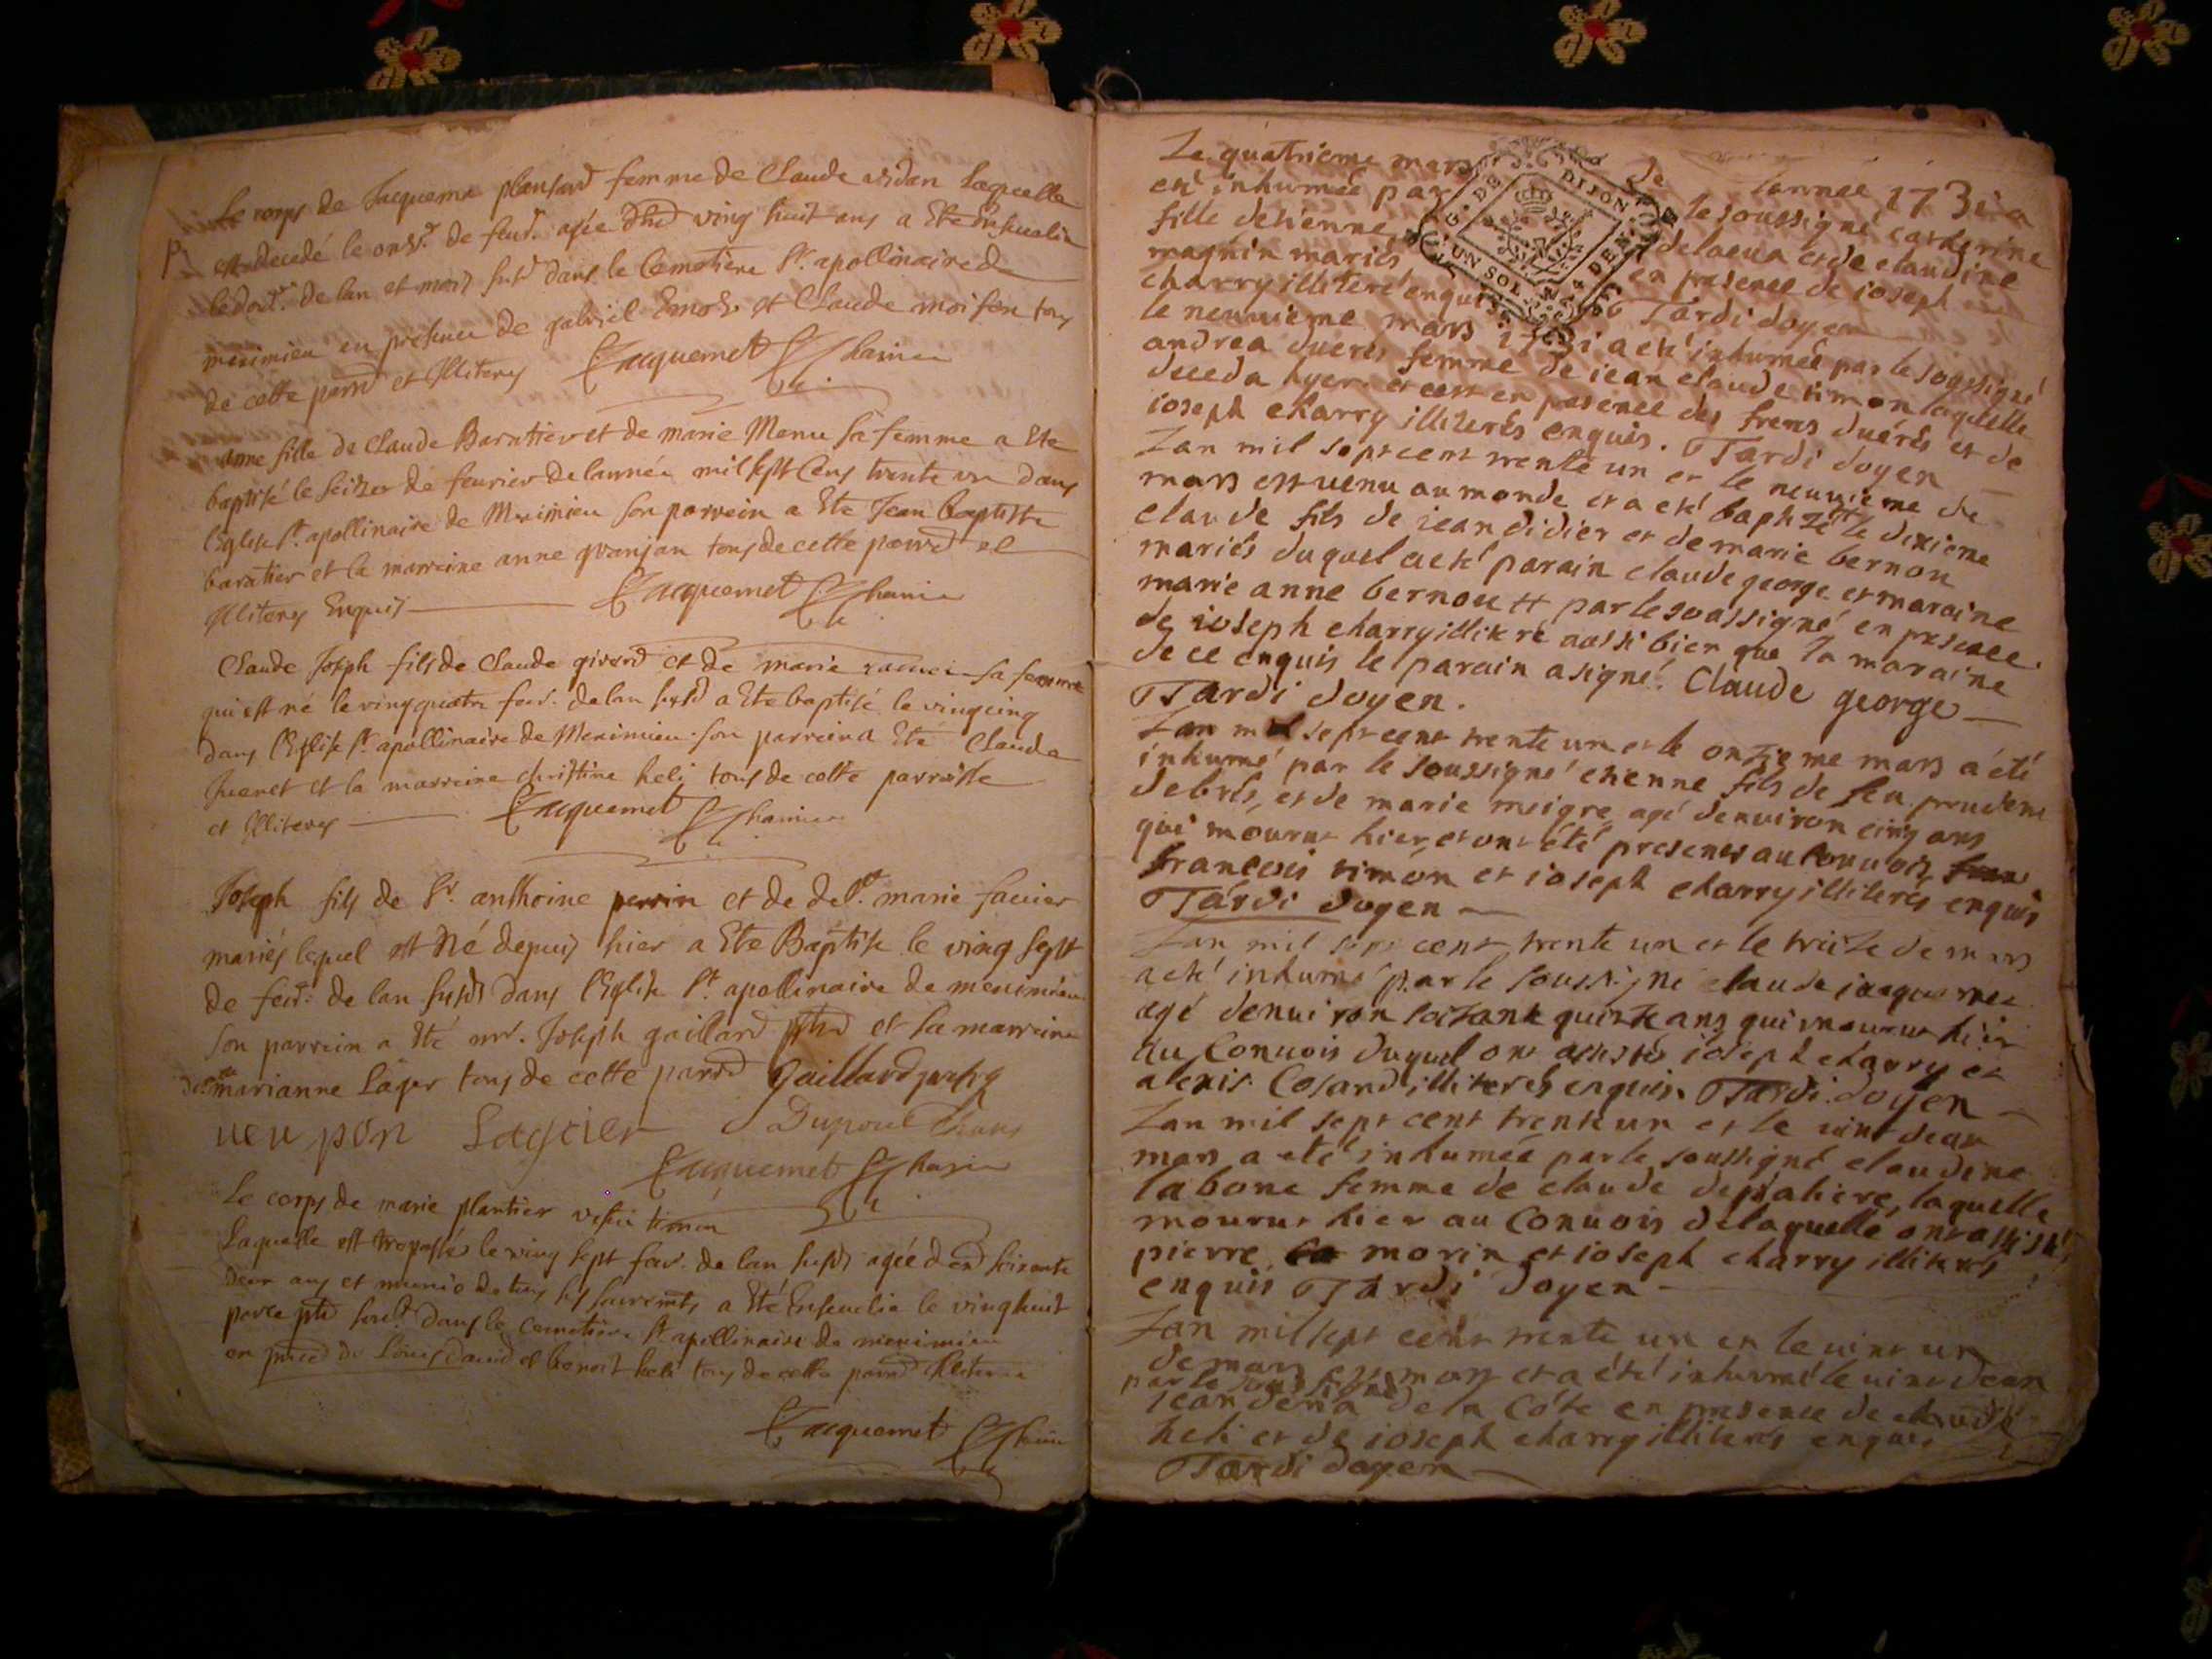 Le corps de Jacquema plansard femme de Claude vidan Laquelle
est decedé le onz.e de feur. agée vingt huit ans a Ete Ensuelie
de lan et mois susd dans le Cemetiere St. apollinaire de
meximieu en presence de gabriel et Claude moifon tous
de cette parrd et Illiteres Jacquemet
anne fille de Claude Baratier et de marie Menu sa femme a Ete
baptisé le seizer de feurier de lannée mil sept Cens trente un dans
lEglise St. apollinaire de Meximieu son parrein a Ete Jean baptiste
baratier et la marreine anne granjan tous de cette parrd et
Illiteres Enquis Jacquemet
Claude Joseph fils de Claude girard et de marie sa femme
qui est né le vingquatre feur. de lan susd a Ete baptisé le vingcinq
dans lEglise St. apollinaire de Meximieu son parrein a Eté Claude
et la marreine christine heli tous de cette parroisse
et Illiteres Jacquemet
Joseph fils de Sr. anthoine perrin et de marie fauier
mariés lequel est Né depuis hier a Ete Baptisé le ving sept
de feur: de lan susd dans lEglise St. apollinaire de meximieu
son parrein a Eté mr. Joseph gaillard et la marreine
marianne Lager tous de cette parrd Gaillard
Lagier
Jacquemet
Le corps de marie plantier timon
Laquelle est trepassée le ving sept feur. de lan susd agée soixante
deux ans et munie de tous ses sacremts a Eté Enseuelie le vinghuit
dans le cemetiere St. apollinaire de meximieu
en de Louis Dauid et benoit heli tous de cette parrd Illiteres
Jacquemet
Le quatrieme mars de lannée 1731 a
eté inhumée par le soussigné catherine
fille detienne delaeua et de claudine
magnin mariés en presence de ioseph
charry illiteré enquis Tardi doyen
G. DE DIJON
UN SOL 4 DEN.
le neuuieme mars 1731 a eté inhumée par le soussigné
andrea dueres femme de iean claude timon laquelle
deceda hyer et cest en presence des freres duerés et de
ioseph charry illiterés enquis. Tardi doyen
Lan mil sept cent trente un et le neuuieme de
mars est uenu au monde et a eté baptizé le dixieme
claude fils de iean didier et de marie bernon
mariés duquel a eté parain claude george et maraine
marie anne bernou par le soussigné en presence
de ioseph charry illiteré aussi bien que la maraine
de ce enquis le parain a signé. Claude george
Tardi doyen.
Lan mil sept cent trente un et le onzieme mars a été
inhumé par le soussigné etienne fils de feu prudent
debrés, et de marie meigre, agé denuiron cinq ans
qui mourut hier, et ont été presens au conuois
francois timon et ioseph charry illiterés enquis
Tardi doyen
Lan mil sept cent trente un et le treize de mars
a eté inhumé par le soussigné claude iacquemet
agé denuiron soixante quinze ans qui mourut hier
au Conuois duquel ont assistés ioseph charry et
alexis Cosand illiterés enquis Tardi doyen
Lan mil sept cent trente un et le uint deux
mars a eté inhumée par le soussigné claudine
labone femme de claude depraliere, laquelle
mourut hier au Conuois delaquelle ont assisté
pierre morin et ioseph charry illiterés
enquis Tardi doyen
Lan mil sept cent trente un et le uint un
de mars est mort et a été inhumé le uint deux
par le soussigné
iean de la Côte en presence de claude
heli et de ioseph charry illiterés enquis
Tardi doyen